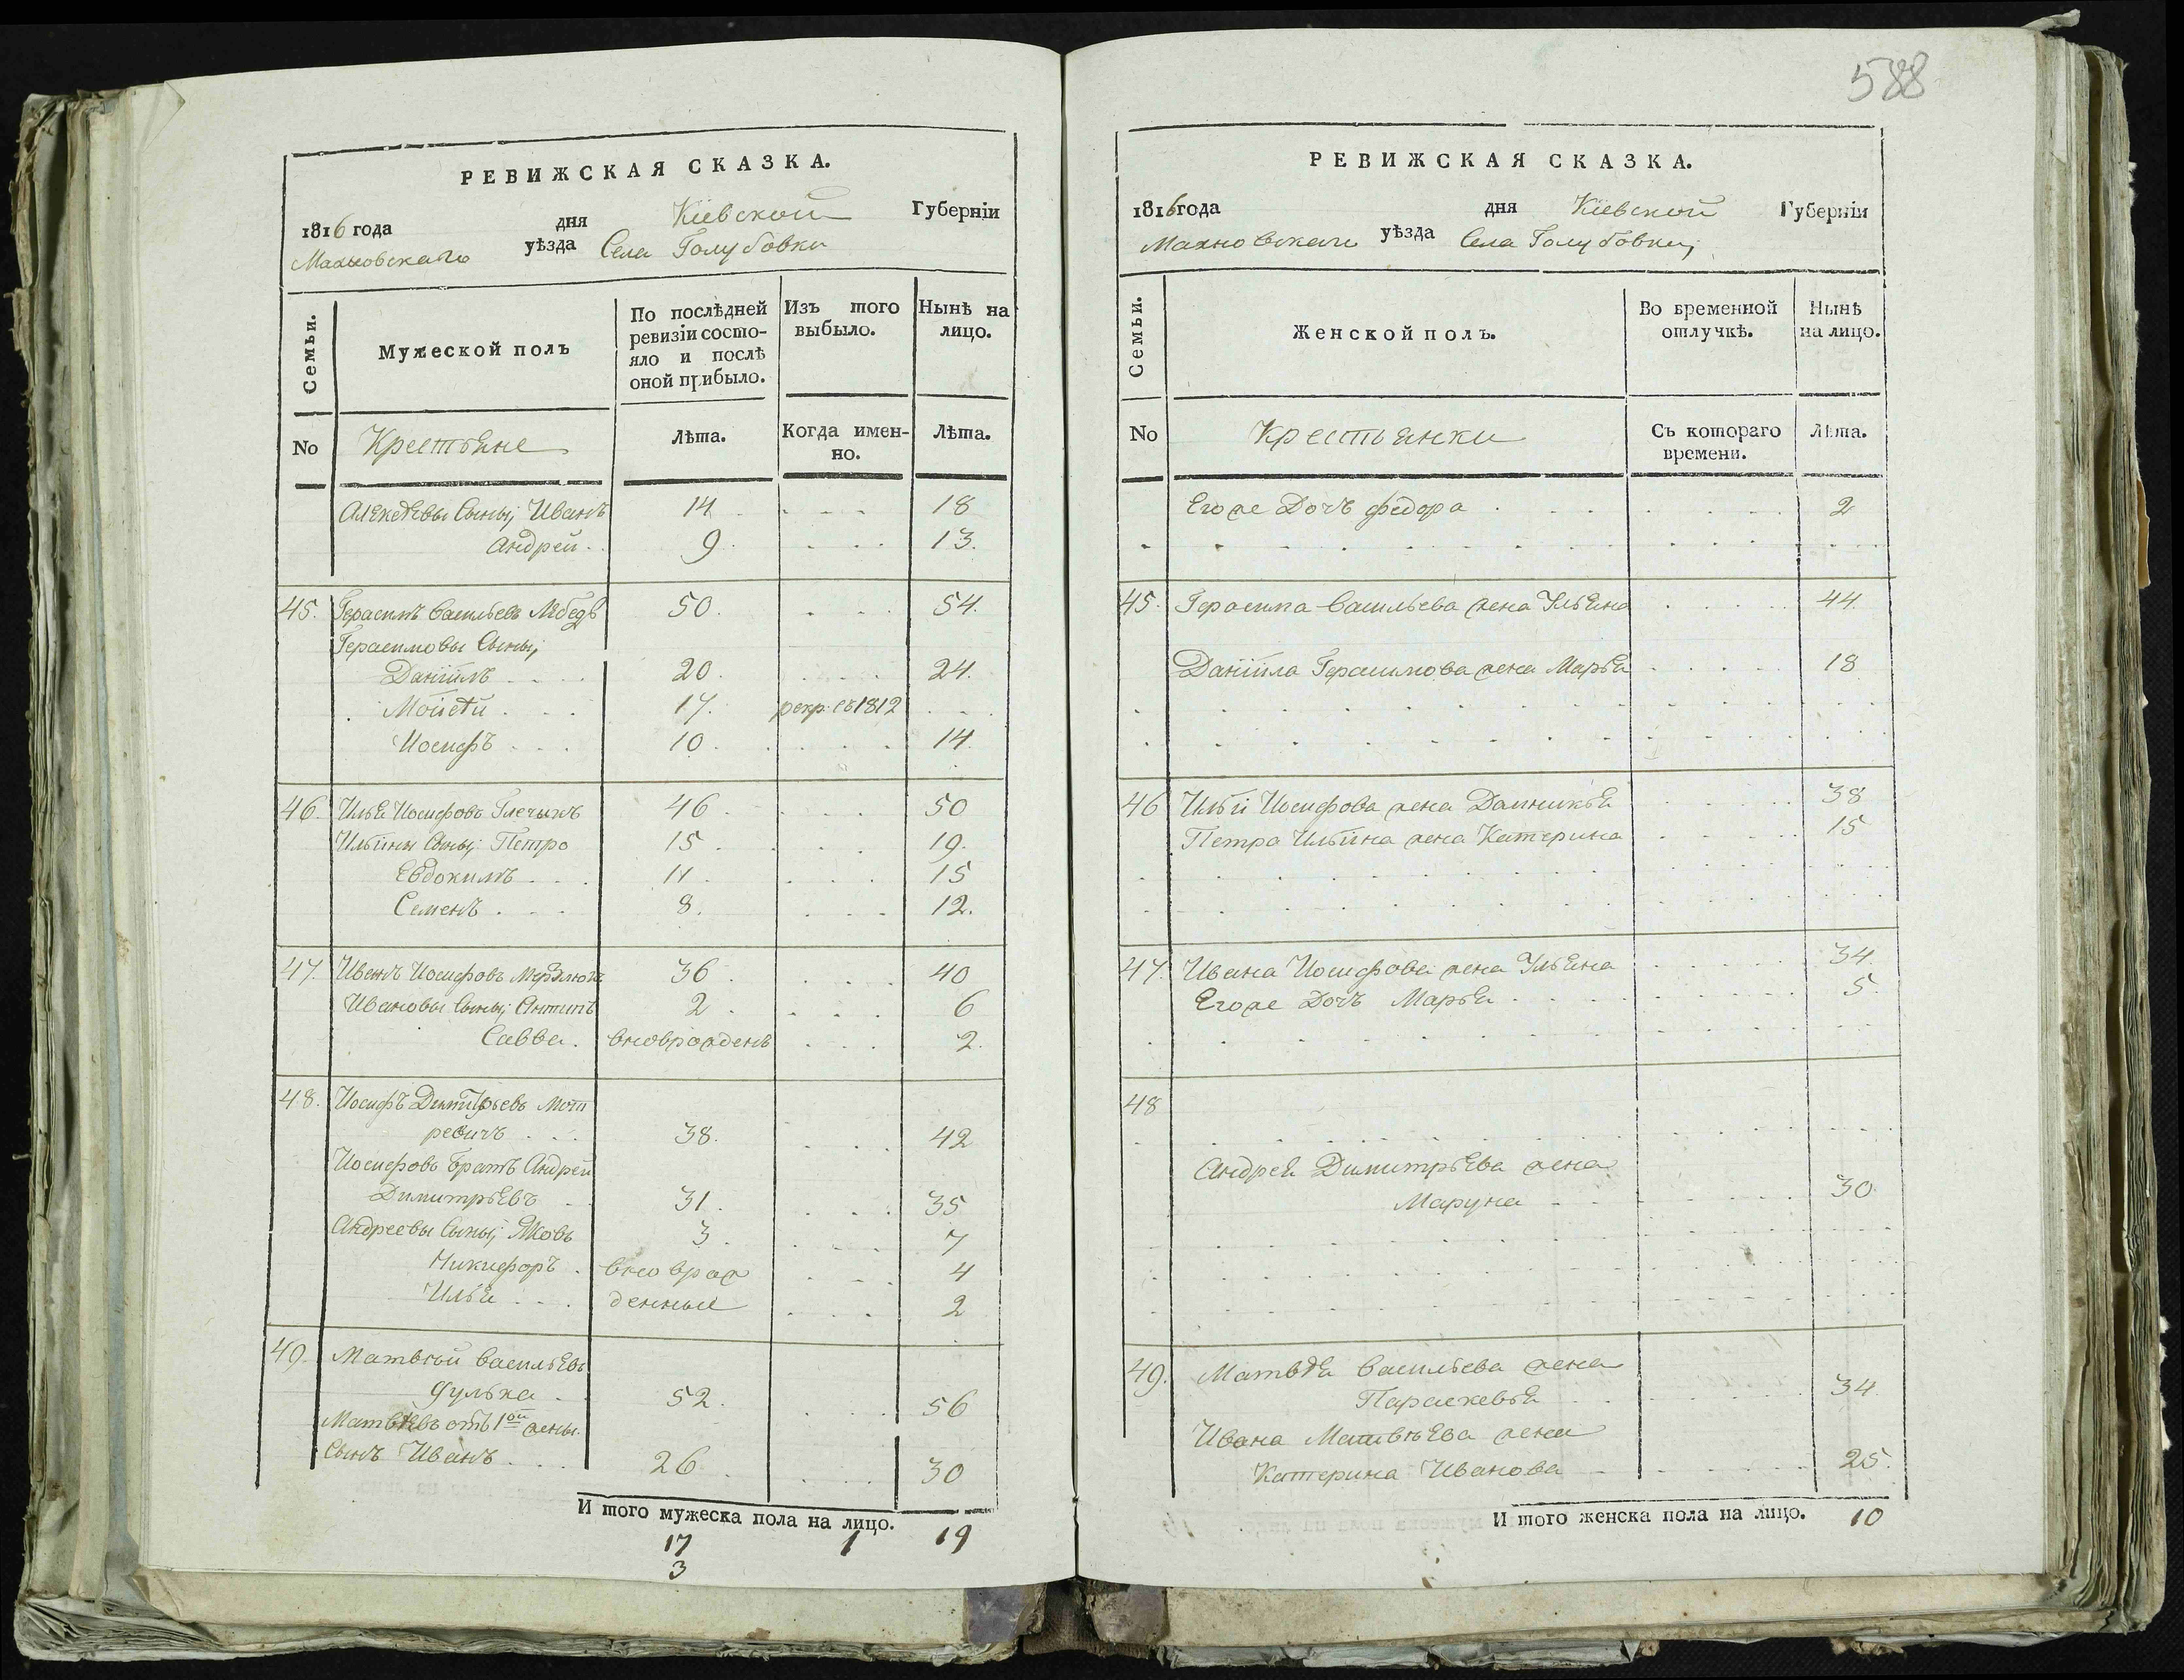 588
РЕВИЖСКАЯ СКАЗКА.
1816 года дня Кіевской Губерніи
Махновскаго уѣзда Села Голубовки
Семьи.
Мужеской полъ
По послѣдней ревизіи состо-
яло и послѣ
оной прибыло.
Изъ того
выбыло.
Нынѣ на
лицо.
No Крестьяне Лѣта. Когда имен-
но. Лѣта.
Алексѣевы Сыны; Иванъ 14 18
Андрей 9 13.
45. Герасимъ Васильевъ Лебедь 50. 54.
Герасимовы Сыны;
Даніилъ 20. 24.
Мойсей 17. рекр. въ 1812
Иосифъ 10. 14.
46. Илья Иосифовъ 46 50
Ильины Сыны; Петро 15 19.
Евдокимъ 11 15
Семенъ 8. 12.
47. Иванъ Иосифовъ 36 40
Ивановы Сыны; Антипъ 2 6
Савва вновьрожденъ 2.
48. Иосифъ Димитрьевъ Моти
ревичъ 38. 42
Иосифовъ Братъ Андрей
Димитрьевъ 31. 35
Андреевы Сыны; Яковъ 3 7
Никифоръ вновьрож 4
Илья денныи 2
49. Матвѣй Васильевъ
52. 56
Матвѣевъ отъ 1ой жены
Сынъ Иванъ 26 30
И того мужеска пола на лицо.
17 1 19
3
РЕВИЖСКАЯ СКАЗКА.
1816 года дня Кіевской Губерніи
Махновскаго уѣзда Села Голубовки;
Семьи.
Женской полъ.
Во временной
отлучкѣ.
Нынѣ
на лицо.
No Крестьянки Съ котораго
времени. Лѣта.
Егоже Дочъ Федора 2
45. Герасима Васильева жена Ульяна 44.
Даніила Герасимова жена Марья 18
46 Ильи Иосифова жена Домникія 38
Петра Ильина жена Катерина 15
47. Ивана Иосифова жена Ульяна 34.
Егоже Дочъ Марья 5.
48
Андрея Димитрьева жена
Маруна 30
49. Матвѣя Васильева жена
Параскевья 34.
Ивана Матвѣева жена
Катерина Иванова 25.
И того женска пола на лицо. 10